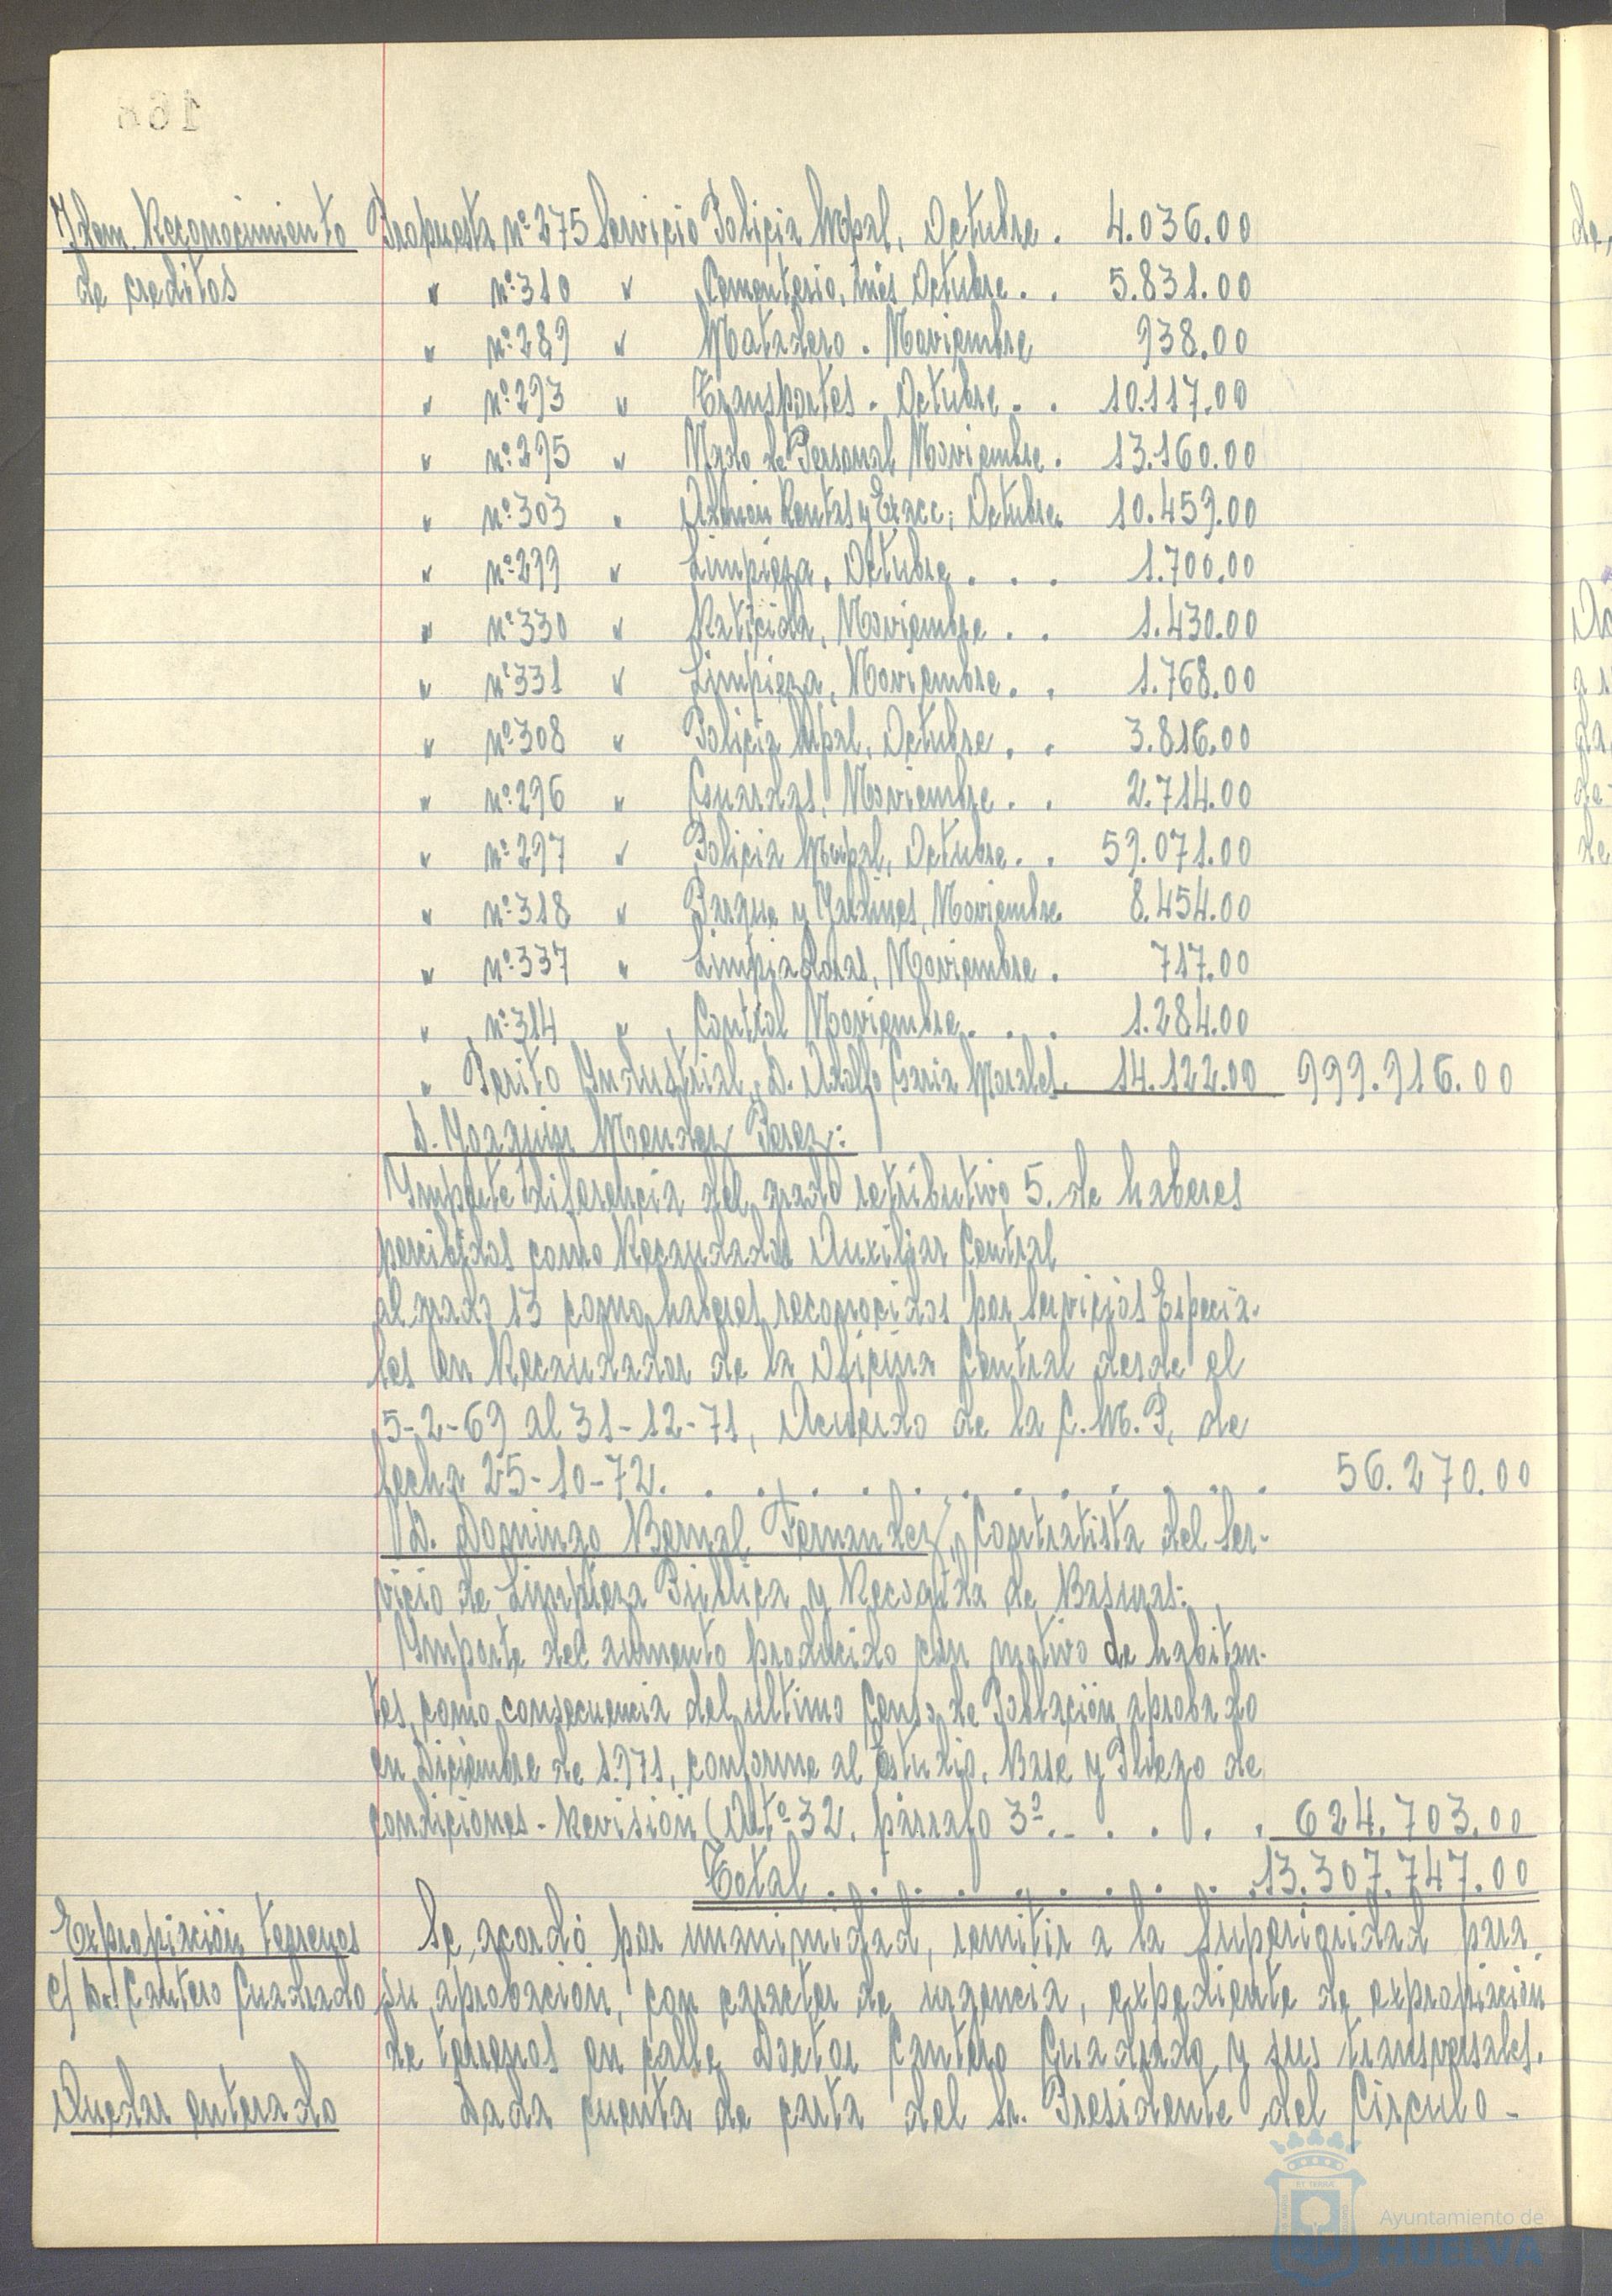 Idem Reconocimiento
de creditos
Propuesta nº 275 Servicio Policia Mpal, Octubre . 4.036.00
" nº 310 " Cementerio, mes Octubre . . 5.831.00
" nº 289 " Matadero . Noviembre 938.00
" nº 293 " Transportes . Octubre . . 10.117.00
" nº 295 " Ngdo de Personal Noviembre . 13.160.00
" nº 303 " Admón Rentas y Exacc; Octubre. 10.459.00
" nº 299 " Limpieza, Octubre . . . 1.700.00
" nº 330 " Raticida, Noviembre . . 1.430.00
" nº 331 " Limpieza, Noviembre . . 1.768.00
" nº 308 " Policia Mpal, Octubre . . 3.816.00
" nº 296 " Guardas, Noviembre . . 2.714.00
" nº 297 " Policia Mupal, Octubre . . 59.071.00
" nº 318 " Parque y Jardines, Noviembre. 8.454.00
" nº 337 " Limpiadoras, Noviembre . 717.00
" nº 314 " Control Noviembre . . . 1.284.00
" Perito Industrial, D. Adolfo Garcia Morales. 14.122.00 999.916.00
D. Joaquin Mendez Perez:
Importe diferencia del grado retributivo 5. de haberes
percibidos como Recaudador Auxiliar Central
al grado 13 como haberes reconocidos por Servicios Especia-
les en Recaudador de la Oficina Central desde el
5-2-69 al 31-12-71, Acuerdo de la C.M.P. de
fecha 25-10-72. . . . . . . . . . . . . 56.270.00
D. Domingo Bernal Fernandez, Contratista del Ser-
vicio de Limpieza Pública y Recogida de Basuras:
Importe del aumento producido con motivo de habitan-
tes, como consecuencia del ultimo Censo de Población aprobado
en Diciembre de 1.971, conforme al Estudio, Base y Pliego de
condiciones - Revisión (Artº 32. párrafo 3º. . . . . . 624.703.00
Total . . . . . . . . . . 13.307.747.00
Expropiación terrenos
c/ Dr. Cantero Cuadrado
Se acordó por unanimidad, remitir a la Superioridad para
su aprobación, con caracter de urgencia, expediente de expropiación
de terrenos en calle Doctor Cantero Cuadrado y sus transversales.
Quedar enterado
Dada cuenta de carta del Sr. Presidente del Circulo -
Ayuntamiento de
HUELVA